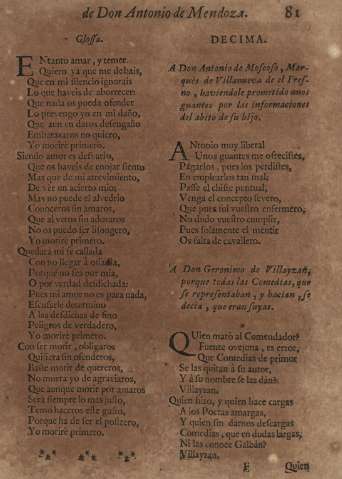 de Don Antonio de Mendoza. 81
Glossa.
ENtanto amar, y temer
Quiero ya que me debais,
Que en mi silencio ignorais
Lo que haveis de aborrecer:
Que nada os pueda ofender
Lo prevengo yo en mi daño,
Que aun en daros desengaño
Embarazaros no quiero,
Yo morirè primero.
Siendo amor es desvario,
Que os haveis de enojar siento
Mas que de mi atrevimiento,
De ver un acierto mio:
Mas no puede el alvedrio
Conoceros sin amaros,
Que al veros sin adoraros
No os puedo ser lisongero,
Yo morirè primero.
Quedará mi fè callada
Con no llegar à osadia,
Porque no sea por mia,
O por verdad desdichada:
Pues mi amor no es para nada,
Escusarle determino
A las desdichas de fino
Peligros de verdadero,
Yo morirè primero.
Con ser morir, obligaros
Quisiera sin ofenderos,
Basle morir de quereros,
No muera yo de agraviaros,
Que aunque morir por amaros
Será siempre lo mas justo,
Temo haceros este gusto,
Porque ha de ser el postrero,
Yo morirè primero.
DECIMA.
A Don Antonio de Moscoso, Mar-
quès de Villanueva de el Fres-
no, haviendole prometido unos
guantes por las informaciones
del abito de su hijo.
ANtonio muy liberal
Unos guantes me ofrecistes,
Pagarlos, pues los perdistes,
En emplearlos tan mal:
Passe el chiste puntual,
Venga el concepto severo,
Que pues fui vuestro enfermero,
No dudo vuestro cumplir,
Pues solamente el mentir
Os falta de cavallero.
A Don Geronimo de Villayzan,
porque todas las Comedias, que
se representaban, y hacian, se
decia, que eran suyas.
QUien matò al Comendador?
Fuente ovejuna, es error,
Que Comedias de primor
Se las quitan à su autor,
Y à su nombre se las dàn:
Villayzan.
Quien hizo, y quien hace cargas
A los Poetas amargas,
Y quien sin darnos descargas
Comedias, que en dudas largas,
Ni las conoce Galbán?
Villayzan.
F Quien